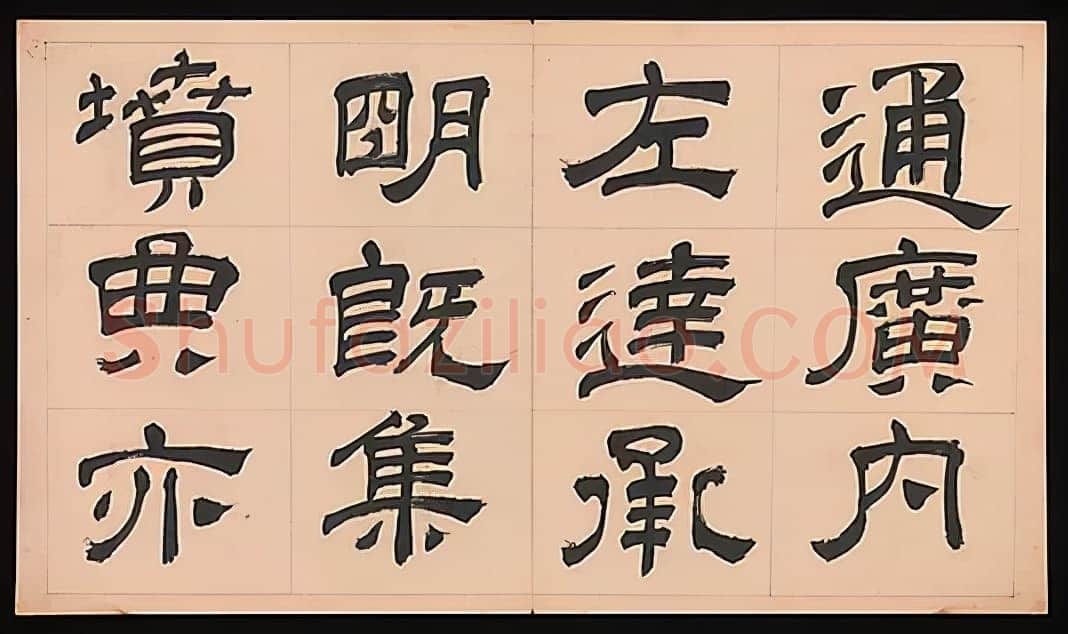 通廣內
左達承
明既集
墳典亦
Shufaziliao.COM